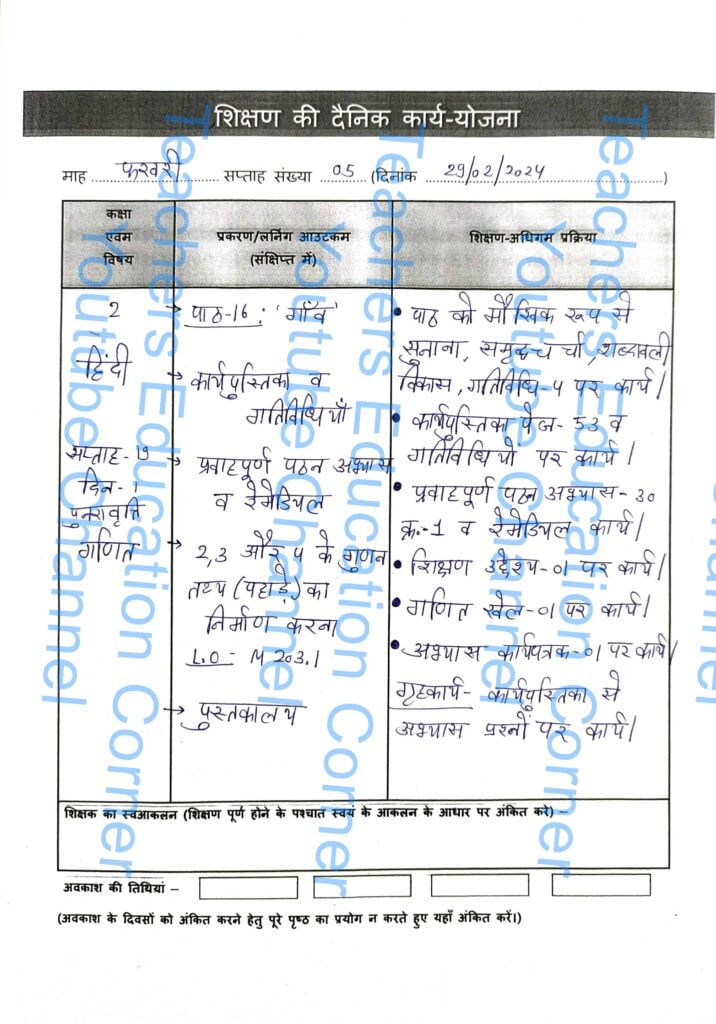 शिक्षण की दैनिक कार्य-योजना
माह फरवरी सप्ताह संख्या 05 (दिनांक 29/02/2024)
कक्षा
एवम
विषय
प्रकरण/लर्निंग आउटकम
(संक्षिप्त में)
शिक्षण-अधिगम प्रक्रिया
2
हिंदी
सप्ताह-19
दिन-1
पुनरावृत्ति
गणित
→ पाठ-16: 'गाँव'
→ कार्यपुस्तिका व
गतिविधियाँ
→ प्रवाहपूर्ण पठन अभ्यास
व रेमेडियल
→ 2,3 और 4 के गुणन
तथ्य (पहाड़े) का
निर्माण करना
L.O - M 203.1
→ पुस्तकालय
• पाठ को मौखिक रूप से
सुनाना, समृद्ध चर्चा, शब्दावली
विकास, गतिविधि-4 पर कार्य|
• कार्यपुस्तिका पेज-53 व
गतिविधियों पर कार्य|
• प्रवाहपूर्ण पठन अभ्यास-30
क्र.-1 व रेमेडियल कार्य|
• शिक्षण उद्देश्य-01 पर कार्य|
• गणित खेल-01 पर कार्य|
• अभ्यास कार्यपत्रक-01 पर कार्य|
गृहकार्य- कार्यपुस्तिका से
अभ्यास प्रश्नों पर कार्य|
शिक्षक का स्वआकलन (शिक्षण पूर्ण होने के पश्चात स्वयं के आकलन के आधार पर अंकित करे) –
अवकाश की तिथियां –
(अवकाश के दिवसों को अंकित करने हेतु पूरे पृष्ठ का प्रयोग न करते हुए यहाँ अंकित करें।)
Teachers Education Corner
Youtube Channel
Teachers Education Corner
Youtube Channel
Teachers Education Corner
Youtube Channel